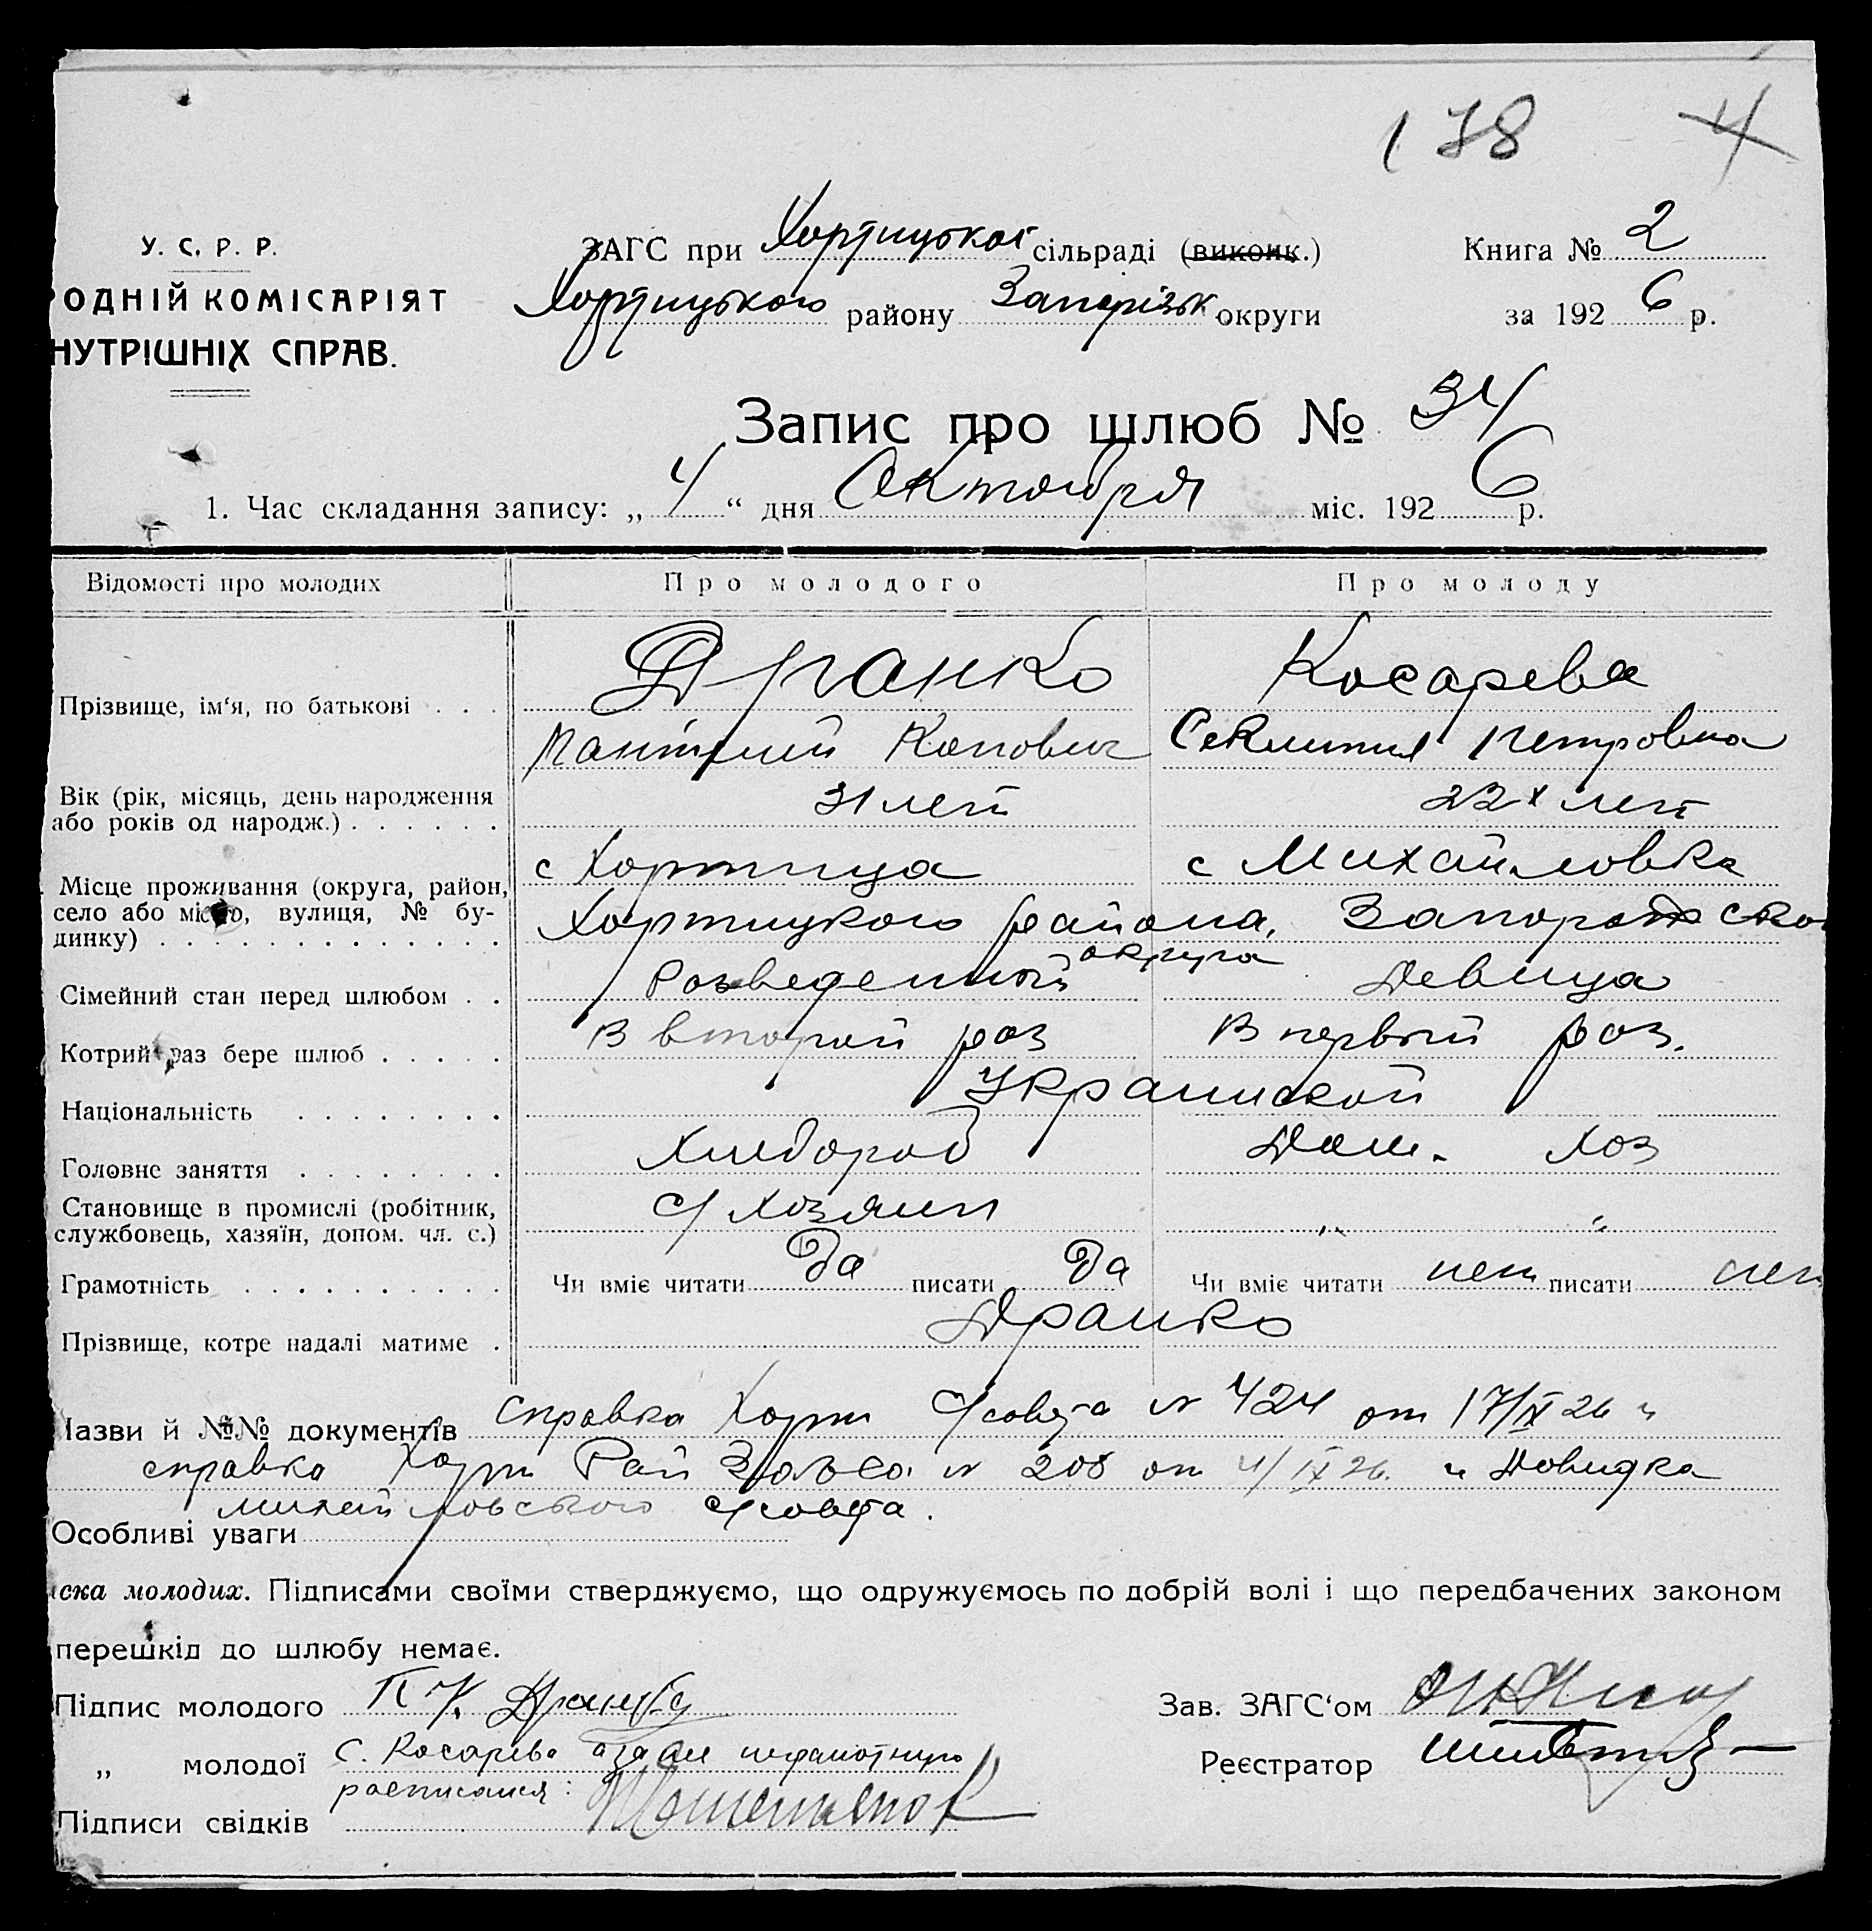 178 4
У. С. Р. Р.
РОДНІЙ КОМІСАРІЯТ
НУТРІШНІХ СПРАВ.
ЗАГС при Хортицькой сільраді (виконк.) Книга № 2
Хортицького району Запорізьк округи за 1926 р.
Запис про шлюб № 34
1. Час складання запису: „4“ дня Октября міс. 1926 р.
Відомості про молодих Про молодого Про молоду
Прізвище, ім‘я, по батькові . . . Дранко Косарева
Петровна
Вік (рік, місяць, день народження
або років од народж.) . . . . . . 31 лет 22х лет
Місце проживання (округа, район,
село або місто, вулиця, № бу-
динку) . . . . . . . . . . . . . .
с Хортица с Михайловка
Хортицкого района, Запорожско
округа
Сімейний стан перед шлюбом . . Розведенный Девица
Котрий раз бере шлюб . . . . . В вторый раз В первый раз.
Національність . . . . . . . . Украинской
Головне заняття . . . . . . . . Хлебороб Дом. хоз
Становище в промислі (робітник,
службовець, хазяїн, допом. чл. с.) с/хозяин „ „
Грамотність . . . . . . . . . . Чи вміє читати Да писати Да Чи вміє читати нет писати нет
Прізвище, котре надалі матиме . Дранко
Назви й №№ документів справка Хорт с/совета N 424 от 17/IX 26 и
справка Хорт Рай N 208 от 4/IX 26. и Довидка
с/совета.
Особливі уваги
иска молодих. Підписами своїми стверджуємо, що одружуємось по добрій волі і що передбачених законом
перешкід до шлюбу немає.
Підпис молодого П К. Дранко
„ молодої С. Косарева а за ее неграмотную
расписался:
Підписи свідків
Зав. ЗАГС‘ом
Реєстратор